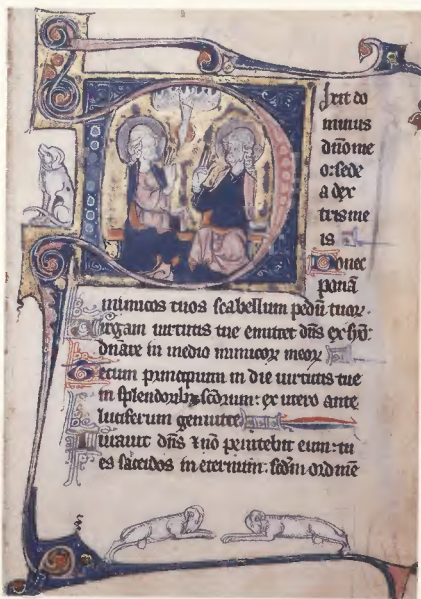 ixit do
minus
dn̄o me
o: sede
a dex
tris me
is
Donec
ponā
inimicos tuos scabellum pedū tuoꝝ.
Uirgam uirtutis tue emittet dn̄s ex syō:
dn̄are in medio inimicoꝝ
Tecum principium in die uirtutis tue
in splendoribꝫ sc̄oꝝ: ex utero ante
luciferum genui te
Iurauit dn̄s ⁊ nō penitebit eum: tu
es sacerdos in eternum: scdm̄ ordinē